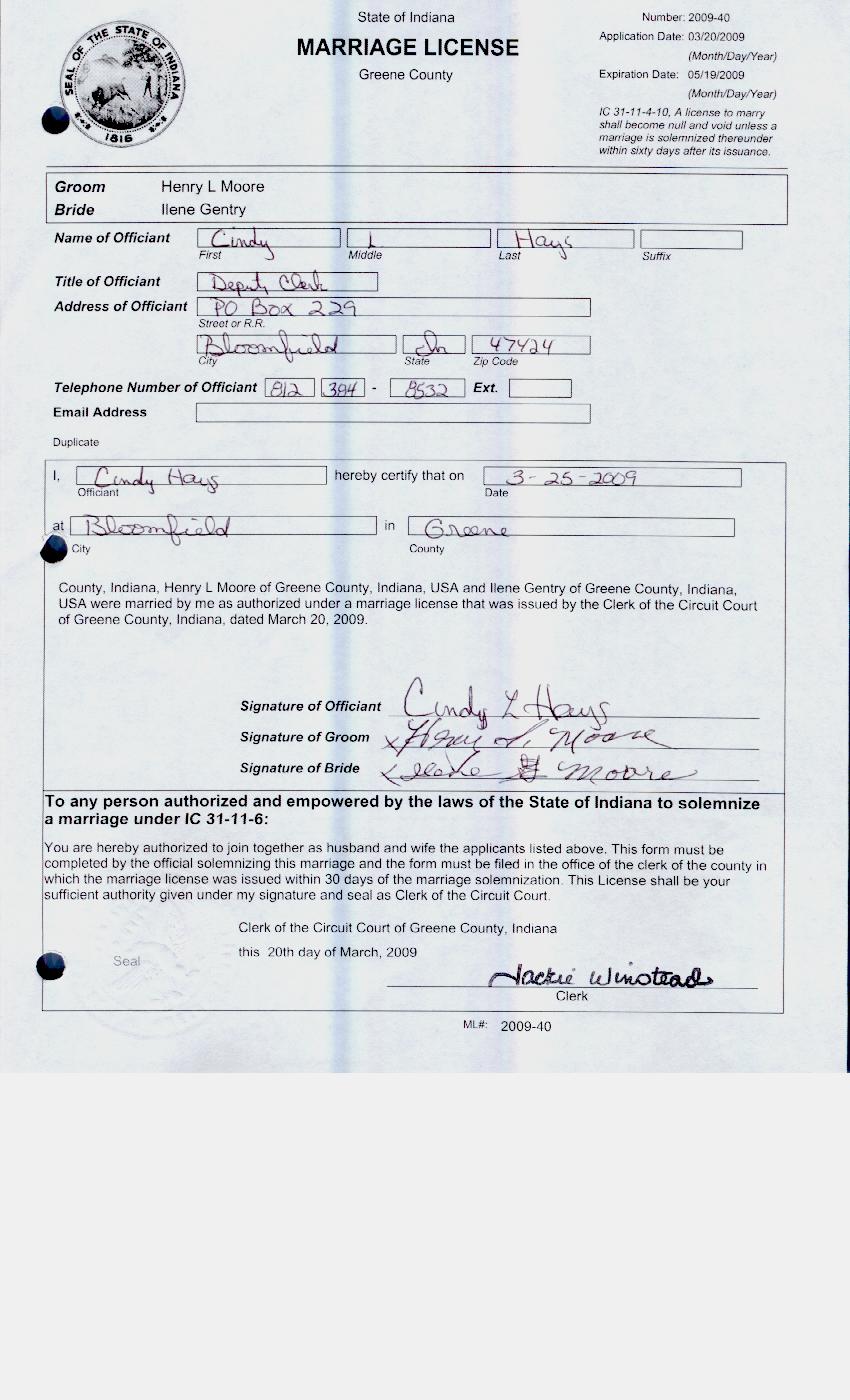 State of Indiana
MARRIAGE LICENSE
Greene County
SEAL OF THE STATE OF INDIANA
1816
Number: 2009-40
Application Date: 03/20/2009
(Month/Day/Year)
Expiration Date: 05/19/2009
(Month/Day/Year)
IC 31-11-4-10, A license to marry
shall become null and void unless a
marriage is solemnized thereunder
within sixty days after its issuance.
Groom Henry L Moore
Bride Ilene Gentry
Name of Officiant Cindy L Hays
First Middle Last Suffix
Title of Officiant Deputy Clerk
Address of Officiant PO Box 229
Street or R.R.
Bloomfield In 47424
City State Zip Code
Telephone Number of Officiant 812 384 - 8532 Ext.
Email Address
Duplicate
I, Cindy Hays hereby certify that on 3-25-2009
Officiant Date
at Bloomfield in Greene
City County
County, Indiana, Henry L Moore of Greene County, Indiana, USA and Ilene Gentry of Greene County, Indiana,
USA were married by me as authorized under a marriage license that was issued by the Clerk of the Circuit Court
of Greene County, Indiana, dated March 20, 2009.
Signature of Officiant Cindy L Hays
Signature of Groom x Henry L. Moore
Signature of Bride x Ilene Moore
To any person authorized and empowered by the laws of the State of Indiana to solemnize
a marriage under IC 31-11-6:
You are hereby authorized to join together as husband and wife the applicants listed above. This form must be
completed by the official solemnizing this marriage and the form must be filed in the office of the clerk of the county in
which the marriage license was issued within 30 days of the marriage solemnization. This License shall be your
sufficient authority given under my signature and seal as Clerk of the Circuit Court.
Clerk of the Circuit Court of Greene County, Indiana
this 20th day of March, 2009
Seal
Jackie Winstead
Clerk
ML#: 2009-40